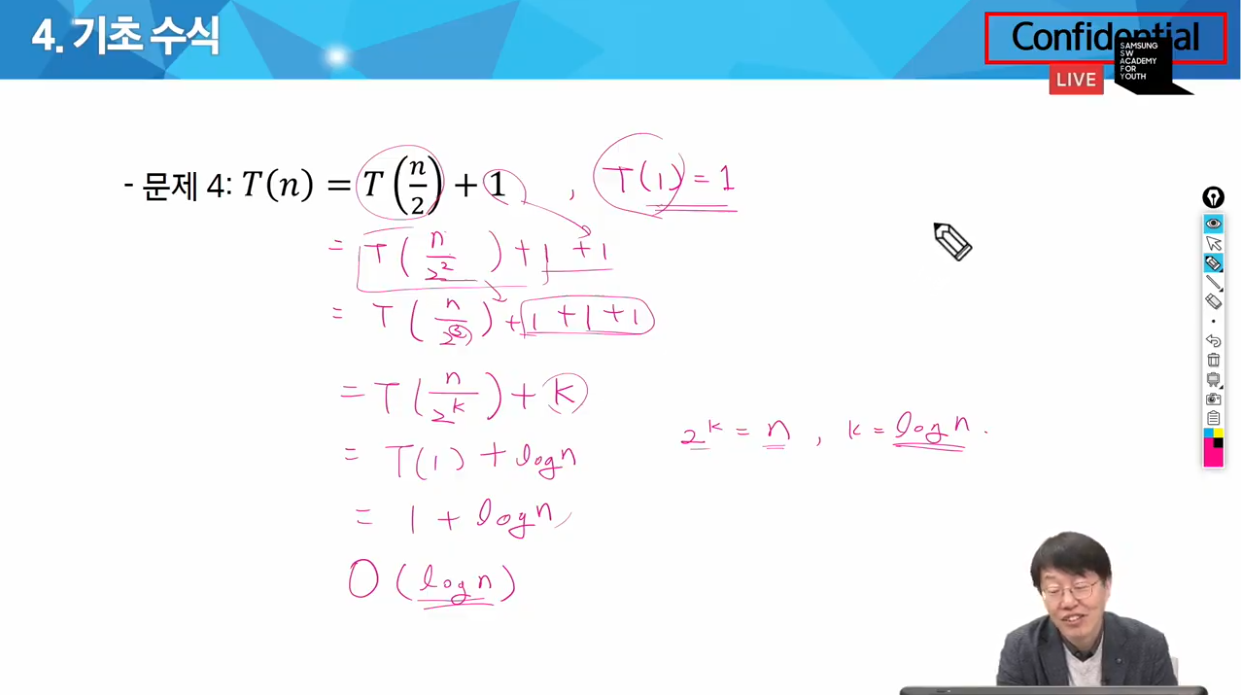 4. 기초 수식
Confidential
LIVE
SAMSUNG
SW
ACADEMY
FOR
YOUTH
- 문제 4: T(n) = T(n/2) + 1 , T(1) = 1
= T(n/2²) + 1 + 1
= T(n/2³) + 1 + 1 + 1
= T(n/2ᵏ) + k
2ᵏ = n , k = log n .
= T(1) + log n
= 1 + log n
O(log n)